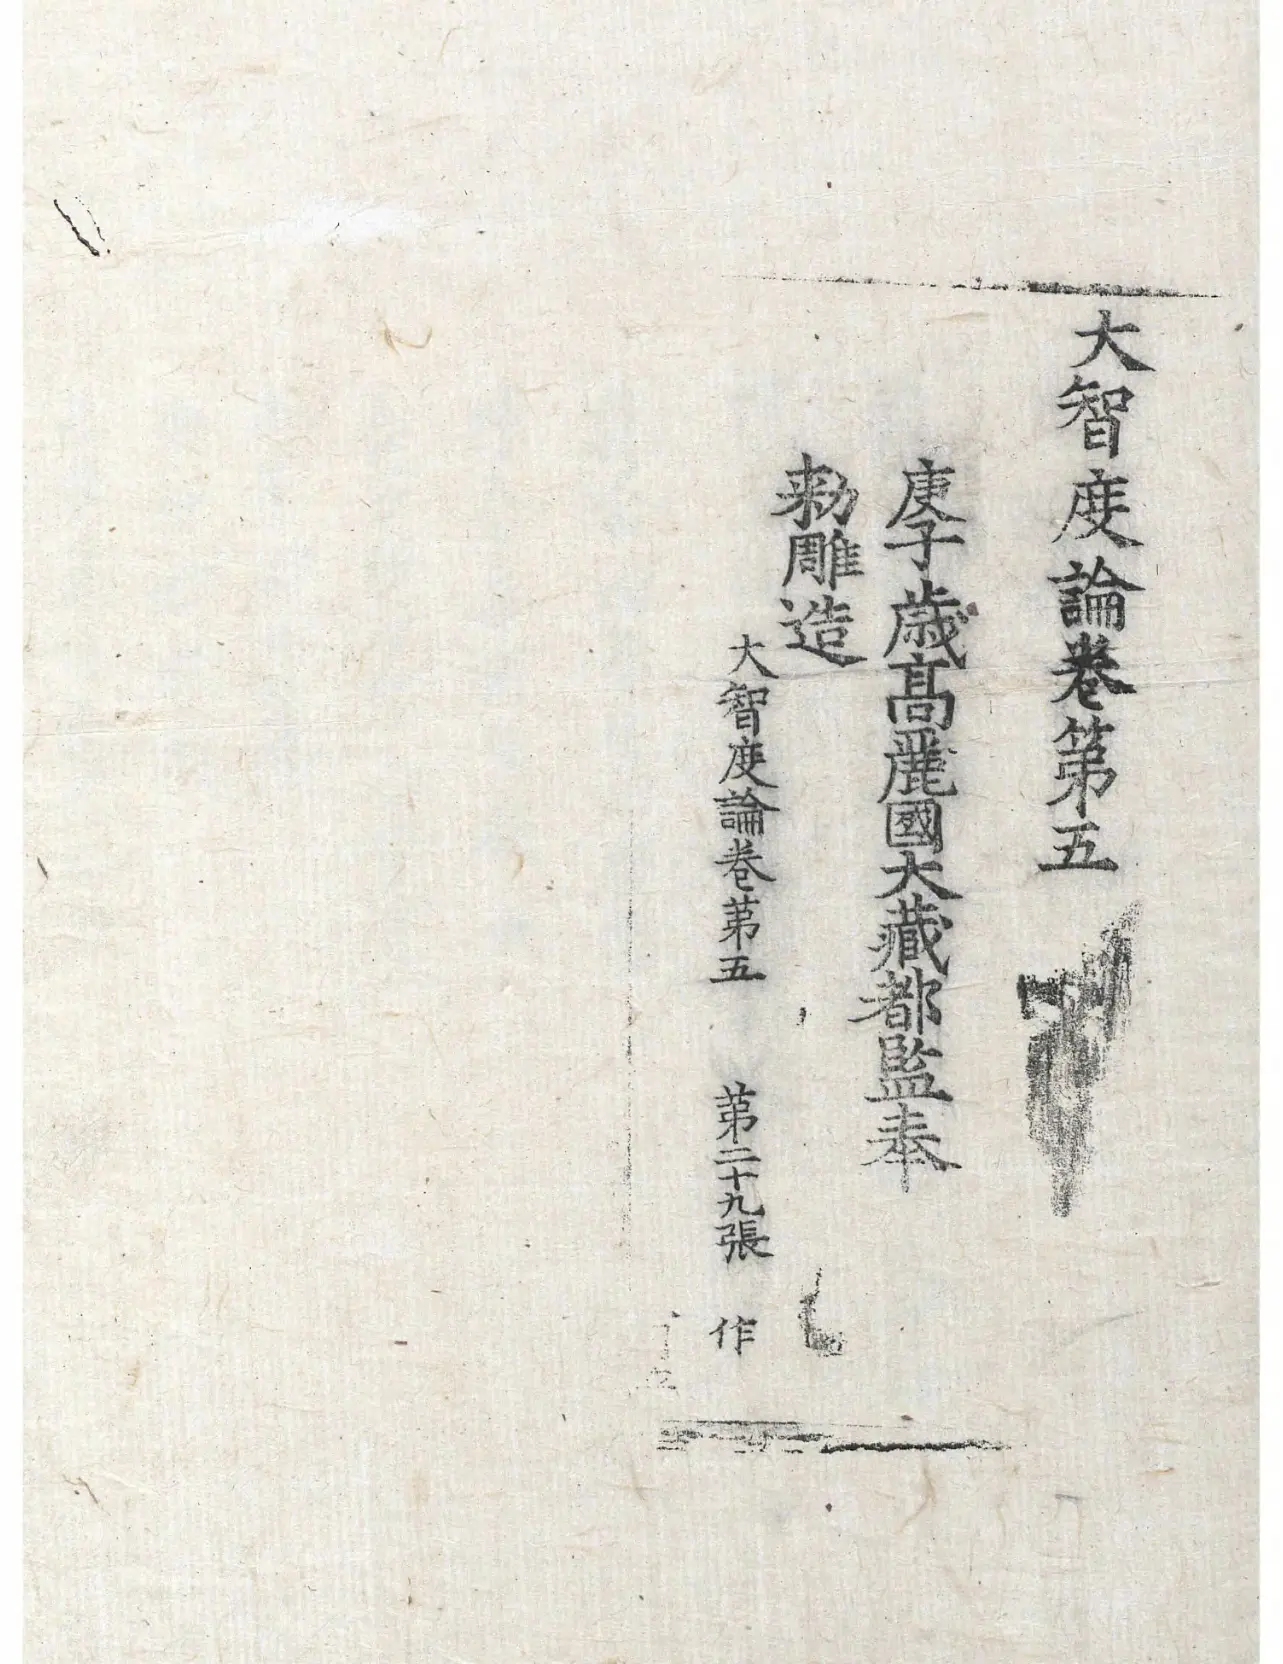 大智度論卷第五
庚子歲高麗國大藏都監奉
勅雕造
大智度論卷苐五 苐二十九張 作